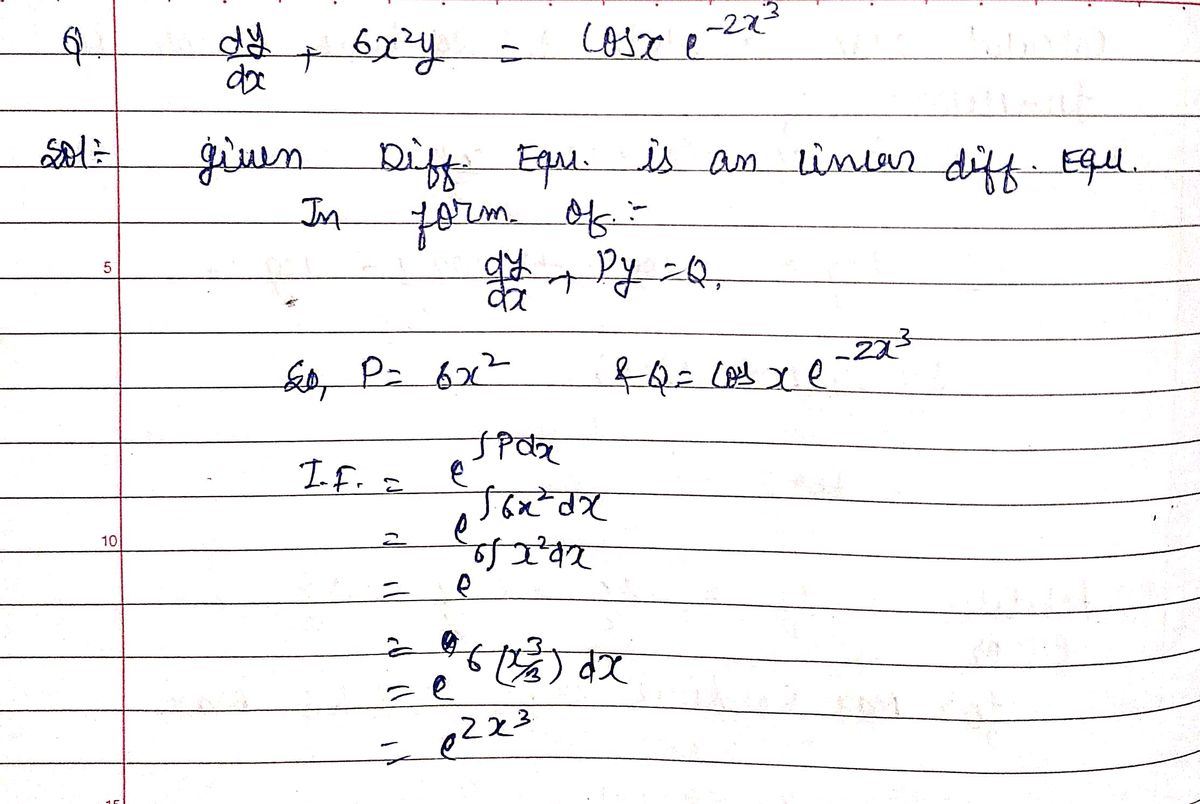 Q. dy/dx + 6x²y = cosx e^-2x³
Sol÷ given Diff. Equ. is an linear diff. Equ.
In form of :-
5
dy/dx + Py = Q.
So, P = 6x² & Q = cos x e^-2x³
I.F. = e^∫Pdx
= e^∫6x²dx
10
= e^6∫x²dx
=
= e^6(x³/3) dx
= e^2x³
15